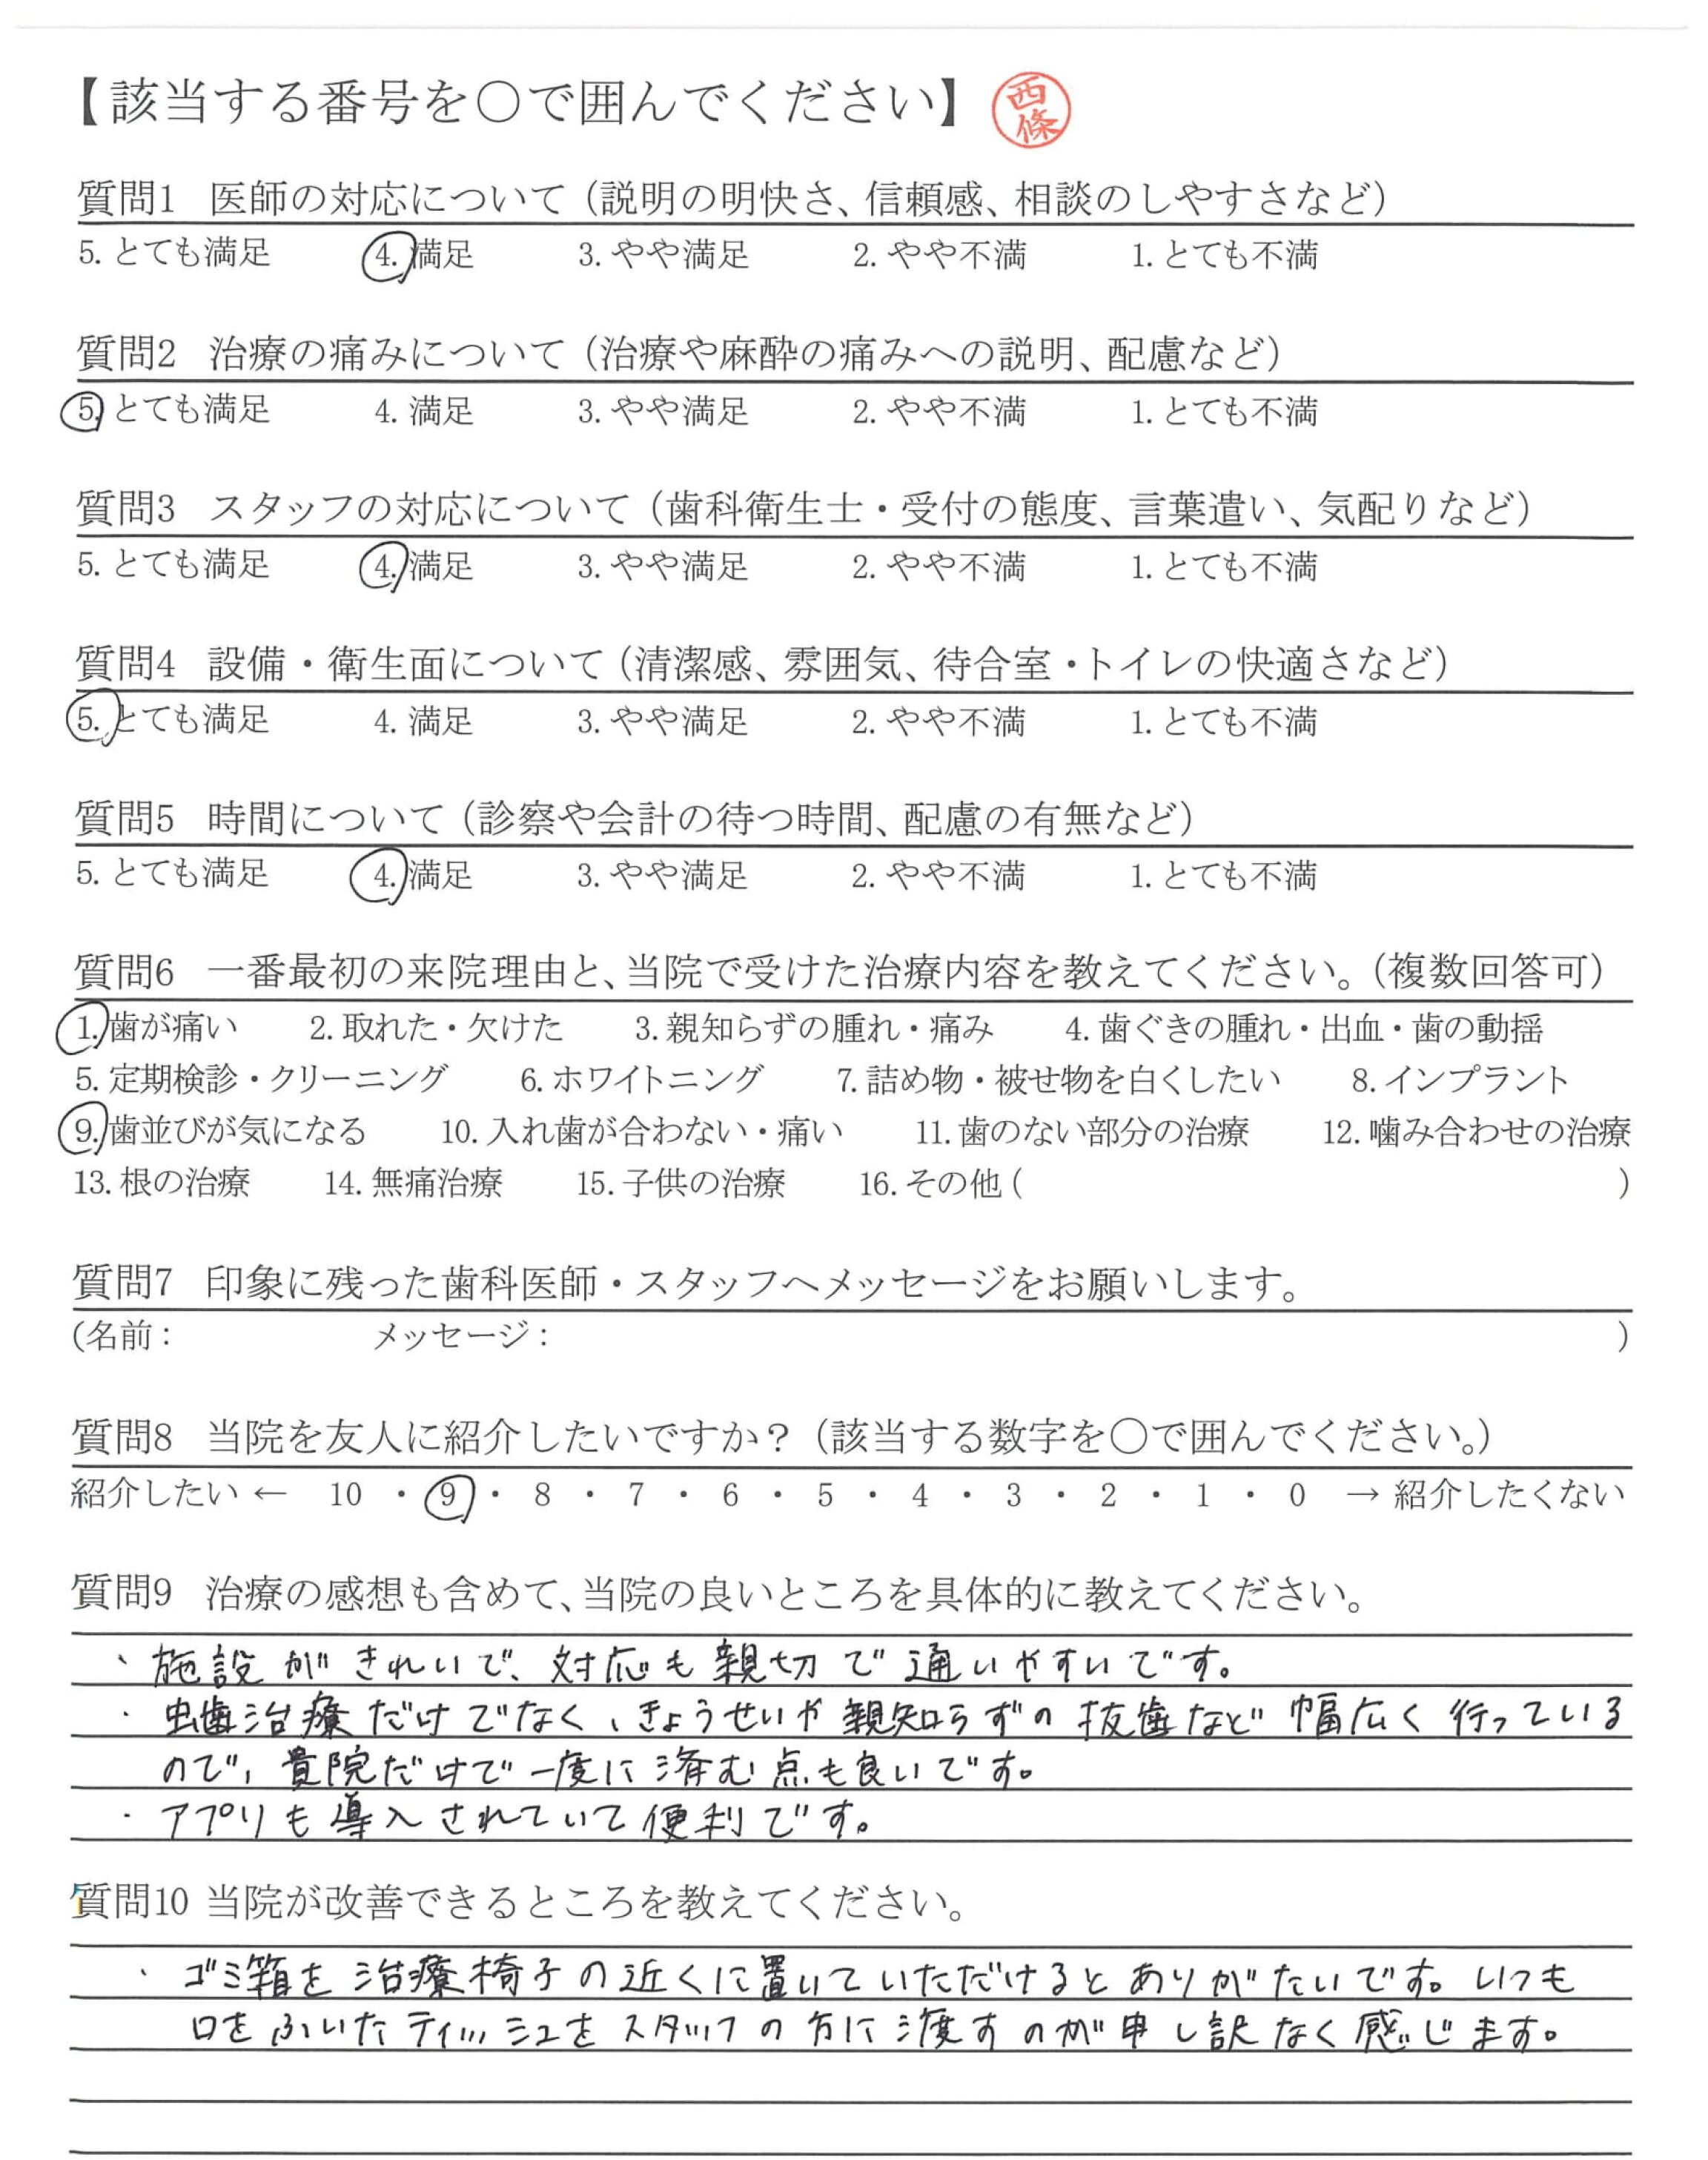 【該当する番号を〇で囲んでください】
西條
質問1 医師の対応について（説明の明快さ、信頼感、相談のしやすさなど）
5. とても満足 4. 満足 3. やや満足 2. やや不満 1. とても不満
質問2 治療の痛みについて（治療や麻酔の痛みへの説明、配慮など）
5. とても満足 4. 満足 3. やや満足 2. やや不満 1. とても不満
質問3 スタッフの対応について（歯科衛生士・受付の態度、言葉遣い、気配りなど）
5. とても満足 4. 満足 3. やや満足 2. やや不満 1. とても不満
質問4 設備・衛生面について（清潔感、雰囲気、待合室・トイレの快適さなど）
5. とても満足 4. 満足 3. やや満足 2. やや不満 1. とても不満
質問5 時間について（診察や会計の待つ時間、配慮の有無など）
5. とても満足 4. 満足 3. やや満足 2. やや不満 1. とても不満
質問6 一番最初の来院理由と、当院で受けた治療内容を教えてください。（複数回答可）
1. 歯が痛い 2. 取れた・欠けた 3. 親知らずの腫れ・痛み 4. 歯ぐきの腫れ・出血・歯の動揺
5. 定期検診・クリーニング 6. ホワイトニング 7. 詰め物・被せ物を白くしたい 8. インプラント
9. 歯並びが気になる 10. 入れ歯が合わない・痛い 11. 歯のない部分の治療 12. 噛み合わせの治療
13. 根の治療 14. 無痛治療 15. 子供の治療 16. その他（ ）
質問7 印象に残った歯科医師・スタッフへメッセージをお願いします。
（名前： メッセージ： ）
質問8 当院を友人に紹介したいですか？（該当する数字を〇で囲んでください。）
紹介したい ← 10 ・ 9 ・ 8 ・ 7 ・ 6 ・ 5 ・ 4 ・ 3 ・ 2 ・ 1 ・ 0 → 紹介したくない
質問9 治療の感想も含めて、当院の良いところを具体的に教えてください。
・施設がきれいで、対応も親切で通いやすいです。
・虫歯治療だけでなく、きょうせいや親知らずの抜歯など幅広く行っている
ので、貴院だけで一度に済む点も良いです。
・アプリも導入されていて便利です。
質問10 当院が改善できるところを教えてください。
・ゴミ箱を治療椅子の近くに置いていただけるとありがたいです。いつも
口をふいたティッシュをスタッフの方に渡すのが申し訳なく感じます。